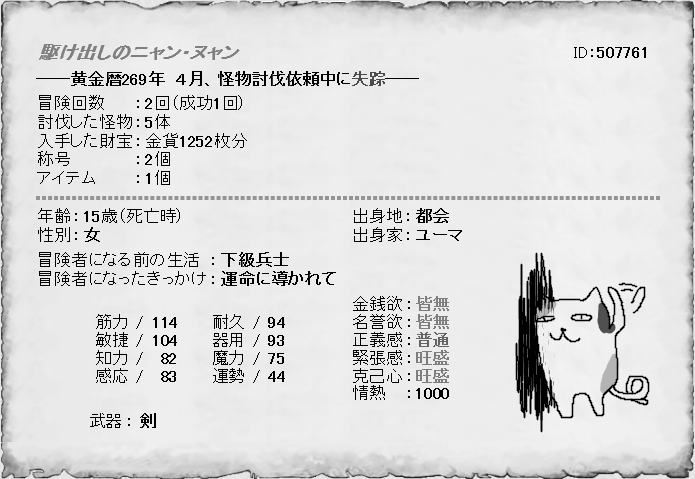 駆け出しのニャン・ヌャン ID:507761
――黄金暦269年 4月、怪物討伐依頼中に失踪――
冒険回数 :2回(成功1回)
討伐した怪物:5体
入手した財宝:金貨1252枚分
称号 :2個
アイテム :1個
年齢:15歳(死亡時) 出身地:都会
性別:女 出身家:ユーマ
冒険者になる前の生活 :下級兵士
冒険者になったきっかけ:運命に導かれて
金銭欲:皆無
筋力 / 114 耐久 / 94 名誉欲:皆無
敏捷 / 104 器用 / 93 正義感:普通
知力 / 82 魔力 / 75 緊張感:旺盛
感応 / 83 運勢 / 44 克己心:旺盛
情熱 :1000
武器:剣